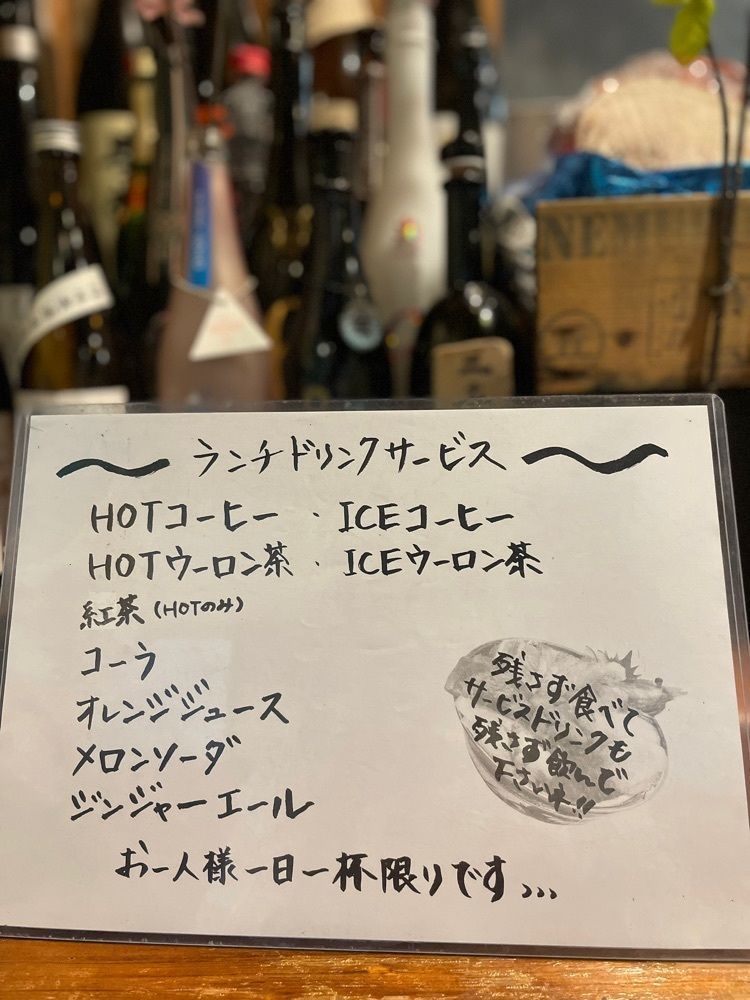 NEM
ランチドリンクサービス
HOTコーヒー ・ ICEコーヒー
HOTウーロン茶 ・ ICEウーロン茶
紅茶 (HOTのみ)
コーラ
オレンジジュース
メロンソーダ
ジンジャーエール
残さず食べて
サービスドリンクも
残さず飲んで
下さいネ!!
お一人様一日一杯限りです、、、